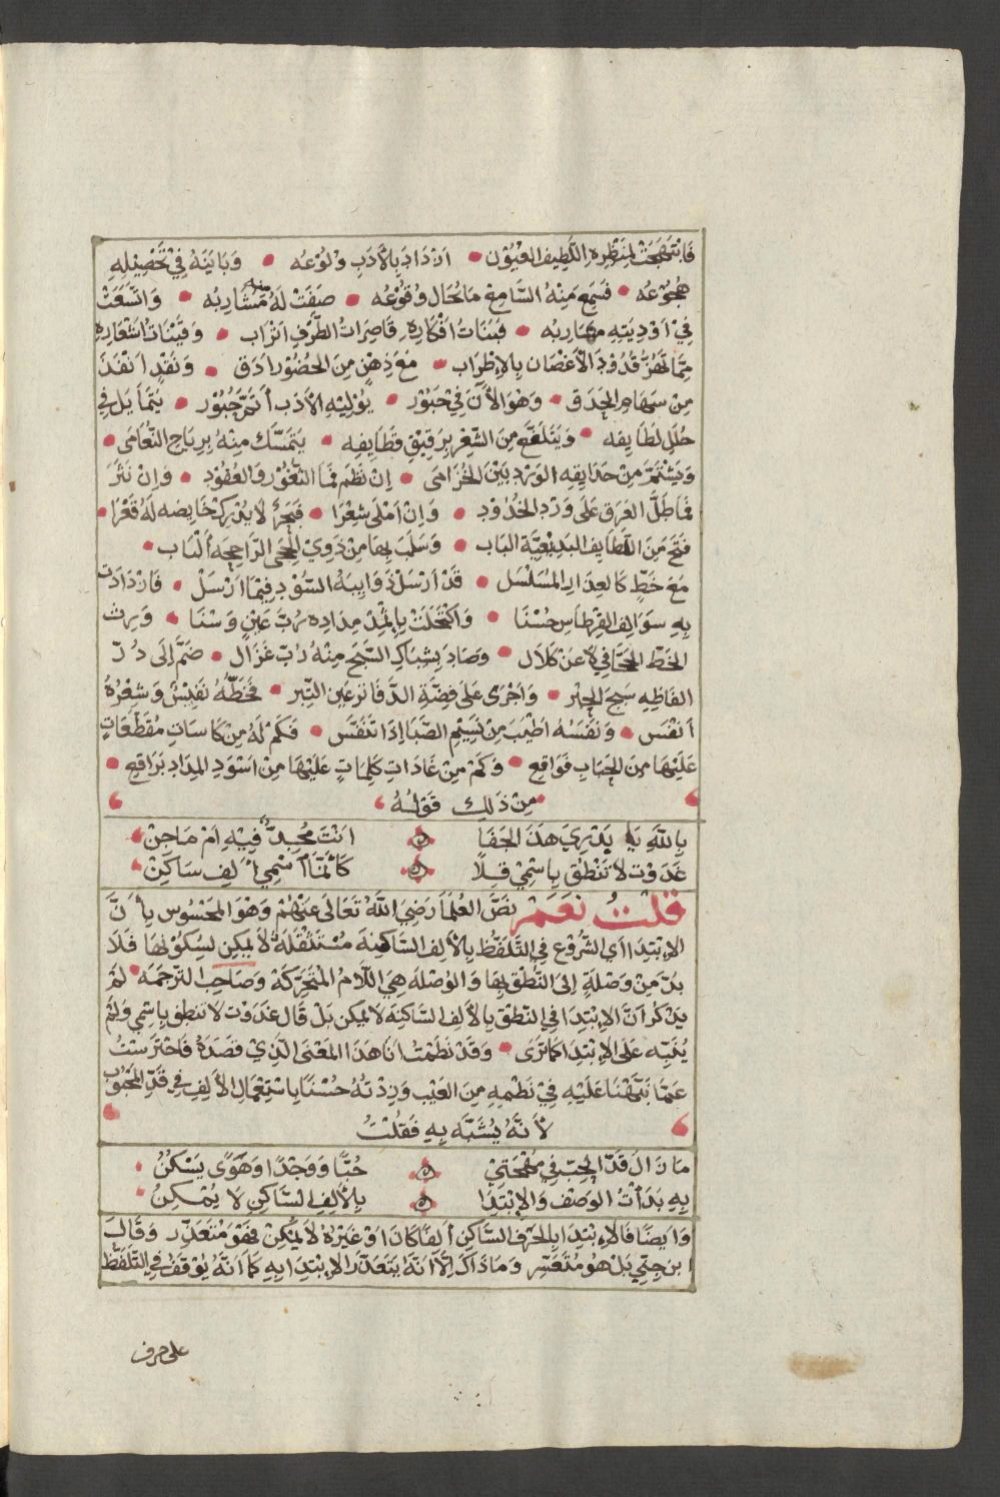 فَابْتَهَجَتْ لِمَنْظَرِهِ اللَّطِيفِ العُيُوْن • ازْدَادَ بِالأَدَبِ وَلُوْعُه • وَبَايَنَهُ فِيْ تَحْصِيْلِهِ
هُجُوْعُه • فَسَمِعَ مِنْهُ السَّامِعُ مَا يُحَال وُقُوْعُه • صَفَتْ لَهُ مَشَارِبُه • وَاتَّسَعَتْ
فِيْ اَوْدِيَتِهِ مَهَارِبُه • فَبَنَاتُ اَفْكَارِهِ قَاصِرَاتُ الطَّرْفِ اَتْرَاب • وَقَيْنَاتُ اَشْعَارِهِ
مِمَّا تَهُزُّ قُدُوْدَ الأَغْصَان بِالإِطْرَاب • مَعَ ذِهْنٍ مِنَ الحُضُوْرِ اَدَق • وَنَقْدٍ اَنْفَذَ
مِنْ سِهَامِ الحَدَق • وَهُوَ الأَنَ فِيْ حُبُوْر • يُوْلِيْهِ الأَدَب أَتَمَّ حُبُوْر • يَتَمَايَل فِي
حُلَلِ لَطَايِفِه • وَيَتَلَفَّع مِنَ الشِّعْرِ بِرَقِيْقِ قَطَايِفِه • يَتَمَسَّك مِنْهُ بِرِيَاحِ النُّعَامَى •
وَيَشْتَمُّ مِنْ حَدَايِقِهِ الوَرْدِ بَيْنَ الخُزَامَى • اِنْ نَظَمَ فَمَا الثُّغُوْر وَالعُقُوْد • وَاِنْ نَثَرَ
فَمَا طَلُّ العَرَق عَلَى وَرْدِ الخُدُوْدِ • وَاِنْ اَمْلَى شِعْرًا • فَبَحْرٌ لَا يُدْرِكُ خَايِضه لَهُ قَعْرًا •
فَتَحَ مِنَ اللَّطَايِفِ البَدِيْعِيَّةِ البَاب • وَسَلَبَ بِهَا مِنْ ذَوِيْ الحِجَى الرَّاجِحَه أَلْبَاب •
مَعَ خَطٍّ كَالعِذَارِ المُسَلْسَل • قَدْ اَرْسَلْ ذَوَايِبَهُ السُّوْدِ فِيْمَا اَرْسَلْ • فَازْدَادَتْ
بِهِ سَوَالِفُ القِرْطَاسِ حُسْنَا • وَاكْتَحَلَتْ بِاِثْمِدِ مِدَادِهِ رُبَّ عَيْنٍ وَسْنَا • وَرِث
الخَطّ لَا عَنْ كَلَال • وَصَادَ بِشِبَاكِ السَّبَجِ مِنْهُ رُبَّ غَزَال • ضَمَّ اِلَى دُرّ
الفَاظِهِ سَبَجَ الحِبْر • وَاَجْرَى عَلَى فِضَّةِ الدَّفَاتِرِ عَيْن التِّبر • فَخَطُّهُ نَفِيْسٌ وَشِعْرُهُ
أَنْفَس • وَنَفَسُه اَطْيَبُ مِنْ نَسِيْمِ الصَّبَا اِذَا تَنَفَّس • فَكَمْ لَهُ مِنْ كَاسَاتِ مُقَطَّعَاتٍ
عَلَيْهَا مِنَ الحَبَابِ فَوَاقِع • وَكَمْ مِنْ غَادَاتِ كَلِمَاتٍ عَلَيْهَا مِنْ اَسْوَدِ المِدَادِ بَرَاقِع •
مِنْ ذَلِك قَوْلُهُ
بِاللّهِ يَا بَدْرِيَ هَذَا الجَفَا ۞ اَنْتَ مُجِدٌّ فِيْهِ اَمْ مَاجِنْ
غَدَوْتَ لَا تَنْطُقْ بِاسْمِيْ قِلًا ۞ كَأَنَّمَا اَسْمِي أَلِف سَاكِنْ
قُلْتُ نَعَمْ نَصَّ العُلَمَا رَضِيَ اللّهُ تَعَالَى عَنْهُمْ وَهُوَ المَحْسُوْس بِأَنَّ
الإِبْتِدَا اَي الشُّرُوْعَ فِي التَّلَفُّظِ بِالأَلِفِ السَّاكِنَةِ مُسْتَقِلَةً لَا يُمْكِن لِسُكُوْنِهَا فَلَا
بُدَّ مِنْ وَصْلَةٍ اِلَى النُّطْقِ بِهَا وَالوُصْلَه هِيَ اللّامُ المُتَحَرِّكَة وَصَاحِب التَّرْجَمَه • لَمْ
يَذْكُر اَنَّ الإِبْتِدَا فِي النُّطْقِ بِالأَلِفِ السَّاكِنَه لَا يُمْكِن بَلْ قَالَ غَدَوْتَ لَا تَنْطِقْ بِاسْمِي وَلَمْ
يُنَبِّه عَلَى الإِبْتِدَا كَمَا تَرَى • وَقَدْ نَظَمْتُ اَنَا هَذَا المَعْنَى الَّذِيْ قَصَدَهُ فَاحْتَرَسْتُ
عَمَّا نَبَّهْنَا عَلَيْهِ فِيْ نَظْمِهِ مِنَ العَيْب وَزِدْتُهُ حُسْنًا بِاسْتِعْمَالِ الأَلِفِ فِي قَدِّ المَحْبُوْب
لأَنَّهُ يُشَبَّه بِهِ فَقُلْتُ
مَا زَالَ قَدّ الحِبّ فِيْ مُهْجَتِيْ ۞ حُبًّا وَوَجْدًا وَهَوًى يَسْكُنُ
بِهِ بَدَأْتُ الوَصْفَ وَالإِبْتِدَا ۞ بِالأَلِفِ السَّاكِنِ لَا يُمْكِنُ
وَاَيضًا فَالإِبْتِدَا بِالحَرْفِ السَّاكِنِ أَلِفًا كَانَ اَوْ غَيْرَهُ لَا يُمْكِنْ فَهُوَ مُتَعَذِّر وَقَالَ
ابن جِنِّي بَلْ هُوَ مُتَعَسِّر وَمَا ذَاكَ اِلَّا اَنَّهُ يَتَعَذَّر الإِبْتِدَا بِهِ كَمَا اَنَّهُ يُوْقَف فِي التَّلَفُّظِ
على حرف